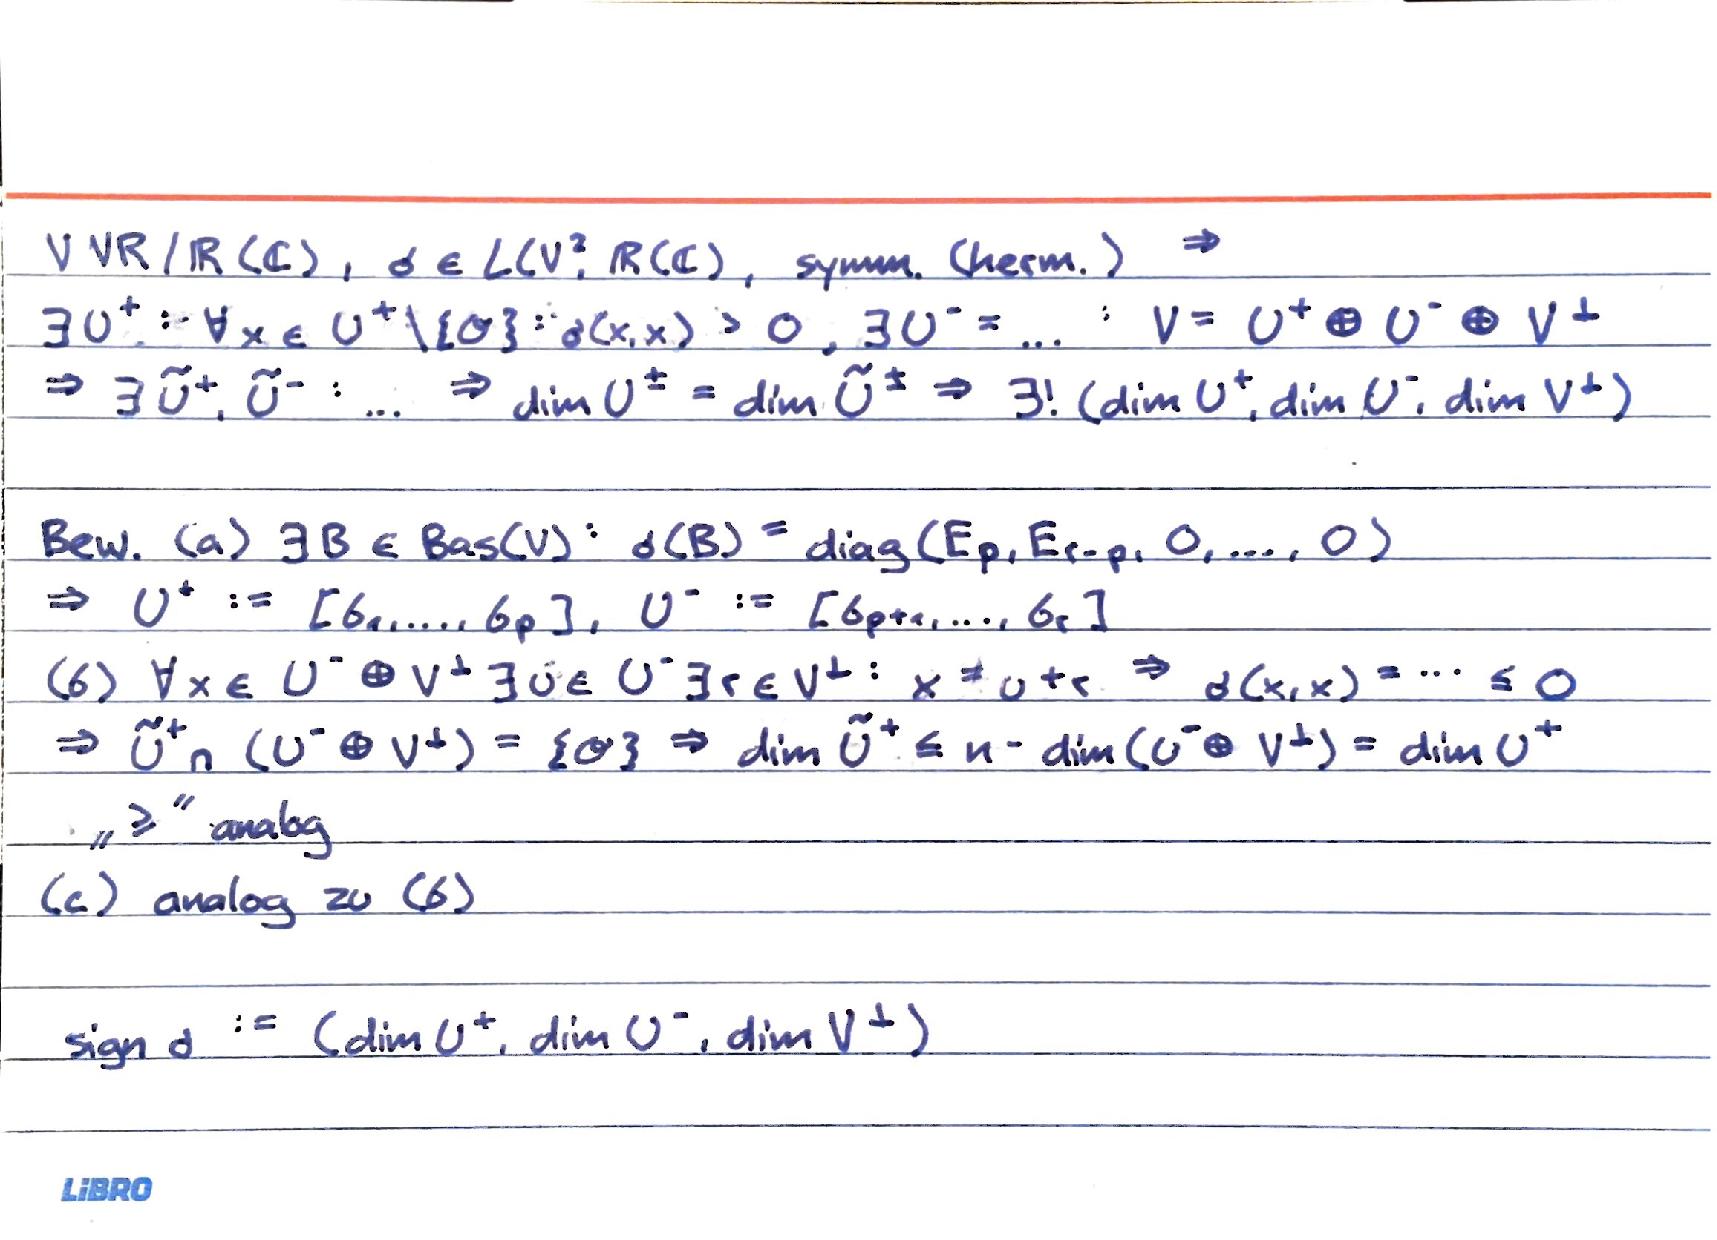 V VR/ℝ(ℂ), σ ∈ L(V², ℝ(ℂ), symm. (herm.) ⇒
∃U⁺ : ∀x ∈ U⁺\{𝒪} : σ(x,x) > 0, ∃U⁻ = ... : V = U⁺ ⊕ U⁻ ⊕ V⊥
⇒ ∃Ũ⁺, Ũ⁻ : ... ⇒ dim U± = dim Ũ± ⇒ ∃! (dim U⁺, dim U⁻, dim V⊥)
Bew. (a) ∃B ∈ Bas(V) : σ(B) = diag(Eₚ, Eᵣ₋ₚ, 0, ..., 0)
⇒ U⁺ := [b₁, ..., bₚ], U⁻ := [bₚ₊₁, ..., bᵣ]
(b) ∀x ∈ U⁻ ⊕ V⊥ ∃u ∈ U⁻ ∃r ∈ V⊥ : x = u+r ⇒ σ(x,x) = ... ≤ 0
⇒ Ũ⁺ ∩ (U⁻ ⊕ V⊥) = {𝒪} ⇒ dim Ũ⁺ ≤ n - dim(U⁻ ⊕ V⊥) = dim U⁺
„≥" analog
(c) analog zu (b)
sign σ := (dim U⁺, dim U⁻, dim V⊥)
LiBRO